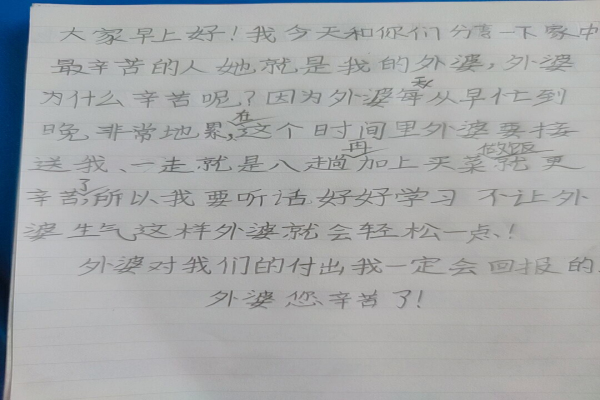 大家早上好！我今天和你们分享一下家中
最辛苦的人她就是我的外婆，外婆
为什么辛苦呢？因为外婆每天从早忙到
晚非常地累，在这个时间里外婆要接
送我、一走就是八趟再加上买菜做饭就更
辛苦了，所以我要听话好好学习不让外
婆生气这样外婆就会轻松一点！
外婆对我们的付出我一定会回报的。
外婆您辛苦了！